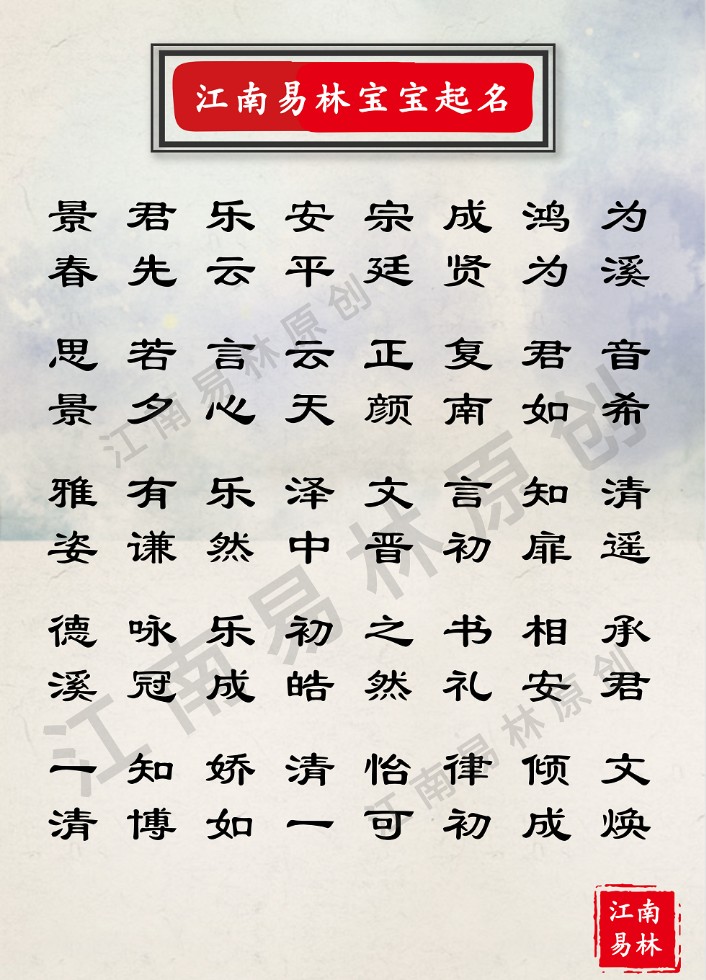 江南易林宝宝起名
景 君 乐 安 宗 成 鸿 为
春 先 云 平 廷 贤 为 溪
思 若 言 云 正 复 君 音
景 夕 心 天 颜 南 如 希
雅 有 乐 泽 文 言 知 清
姿 谦 然 中 晋 初 扉 遥
德 咏 乐 初 之 书 相 承
溪 冠 成 皓 然 礼 安 君
一 知 娇 清 怡 律 倾 文
清 博 如 一 可 初 成 焕
江南易林原创
江南易林原创
江南易林原创
江南
易林